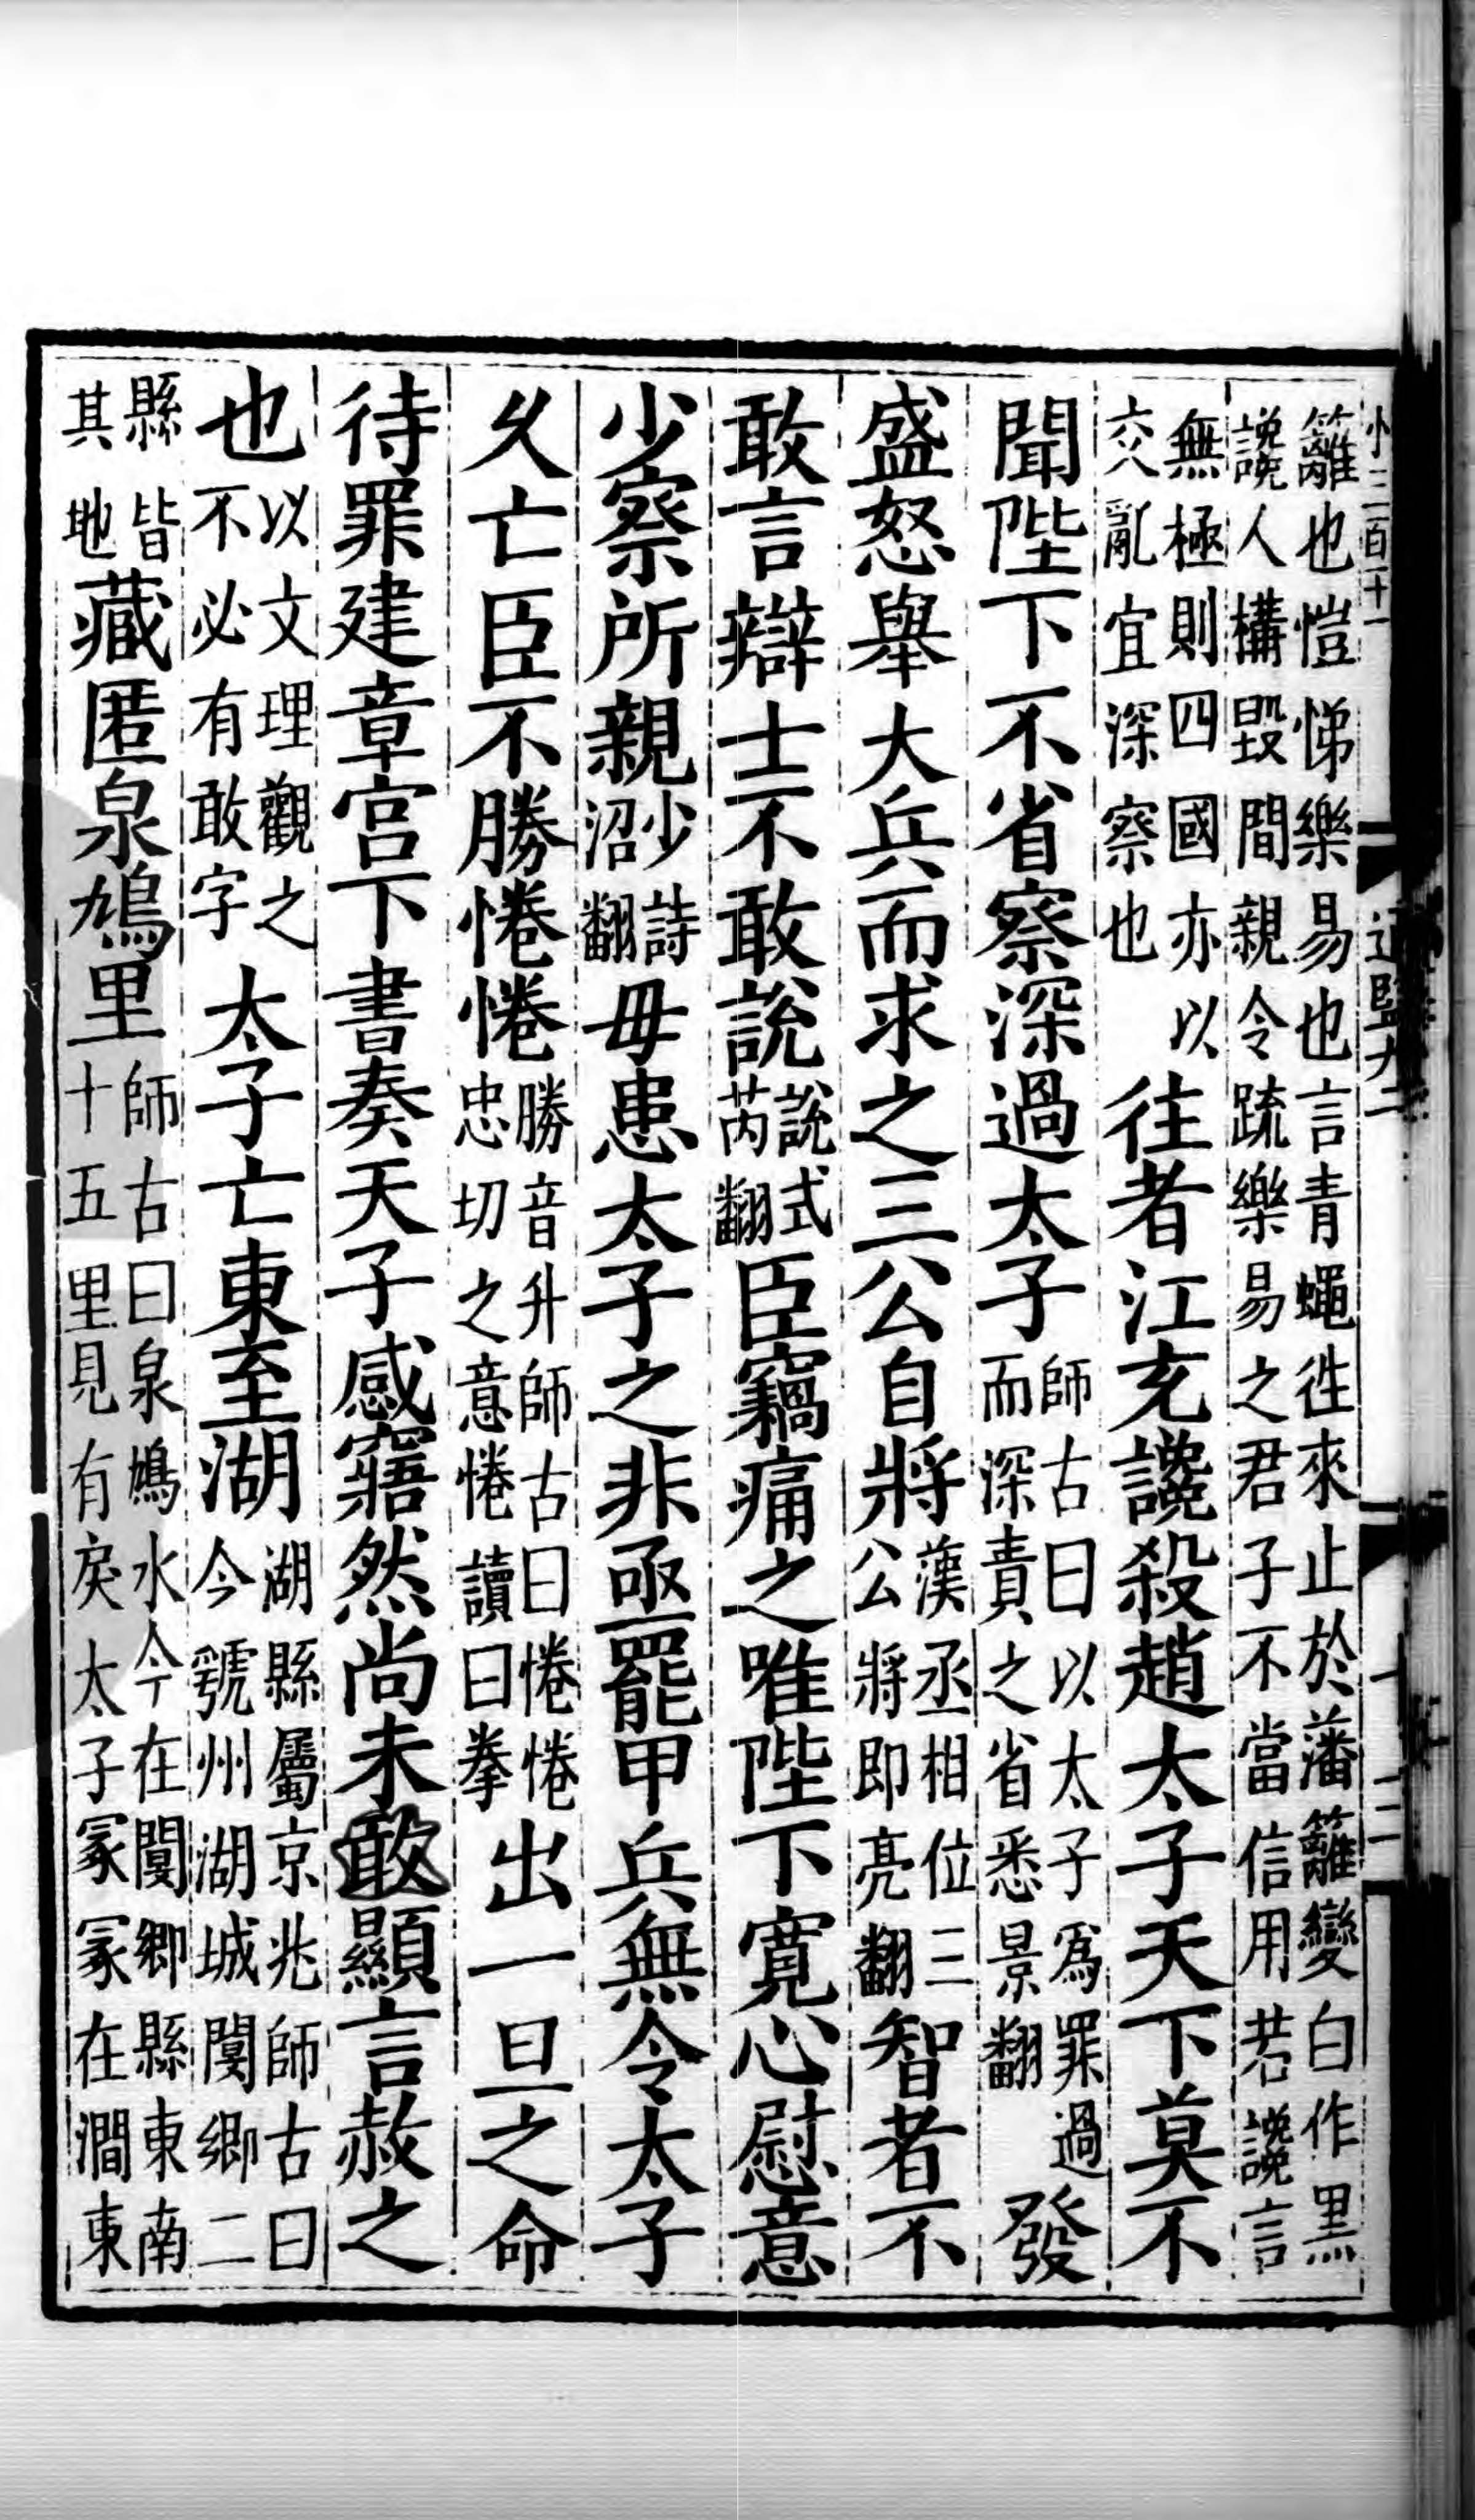 籬也愷悌樂易也言青蠅徃來止於藩籬變白作黒
讒人構毀間親令疏樂易之君子不當信用若讒言
無極則四國亦以
交亂宜深察也
往者江充讒殺趙太子天下莫不
聞陛下不省察深過太子
師古曰以太子爲罪過
而深責之省悉景翻
發
盛怒舉大兵而求之三公自將
漢丞相位三
公將即亮翻
智者不
敢言辯士不敢說
說式
芮翻
臣竊痛之唯陛下寛心慰意
少察所親
少詩
沼翻
毋患太子之非亟罷甲兵無令太子
久亡臣不勝惓惓
勝音升師古曰惓惓
忠切之意惓讀曰拳
出一旦之命
待罪建章宮下書奏天子感寤然尚未敢顯言赦之
也
以文理觀之
不必有敢字
太子亡東至湖
湖縣屬京兆師古曰
今虢州湖城閿鄉二
縣皆
其地
藏匿泉鳩里
師古曰泉鳩水今在閿鄉縣東南
十五里見有戾太子冢冢在澗東